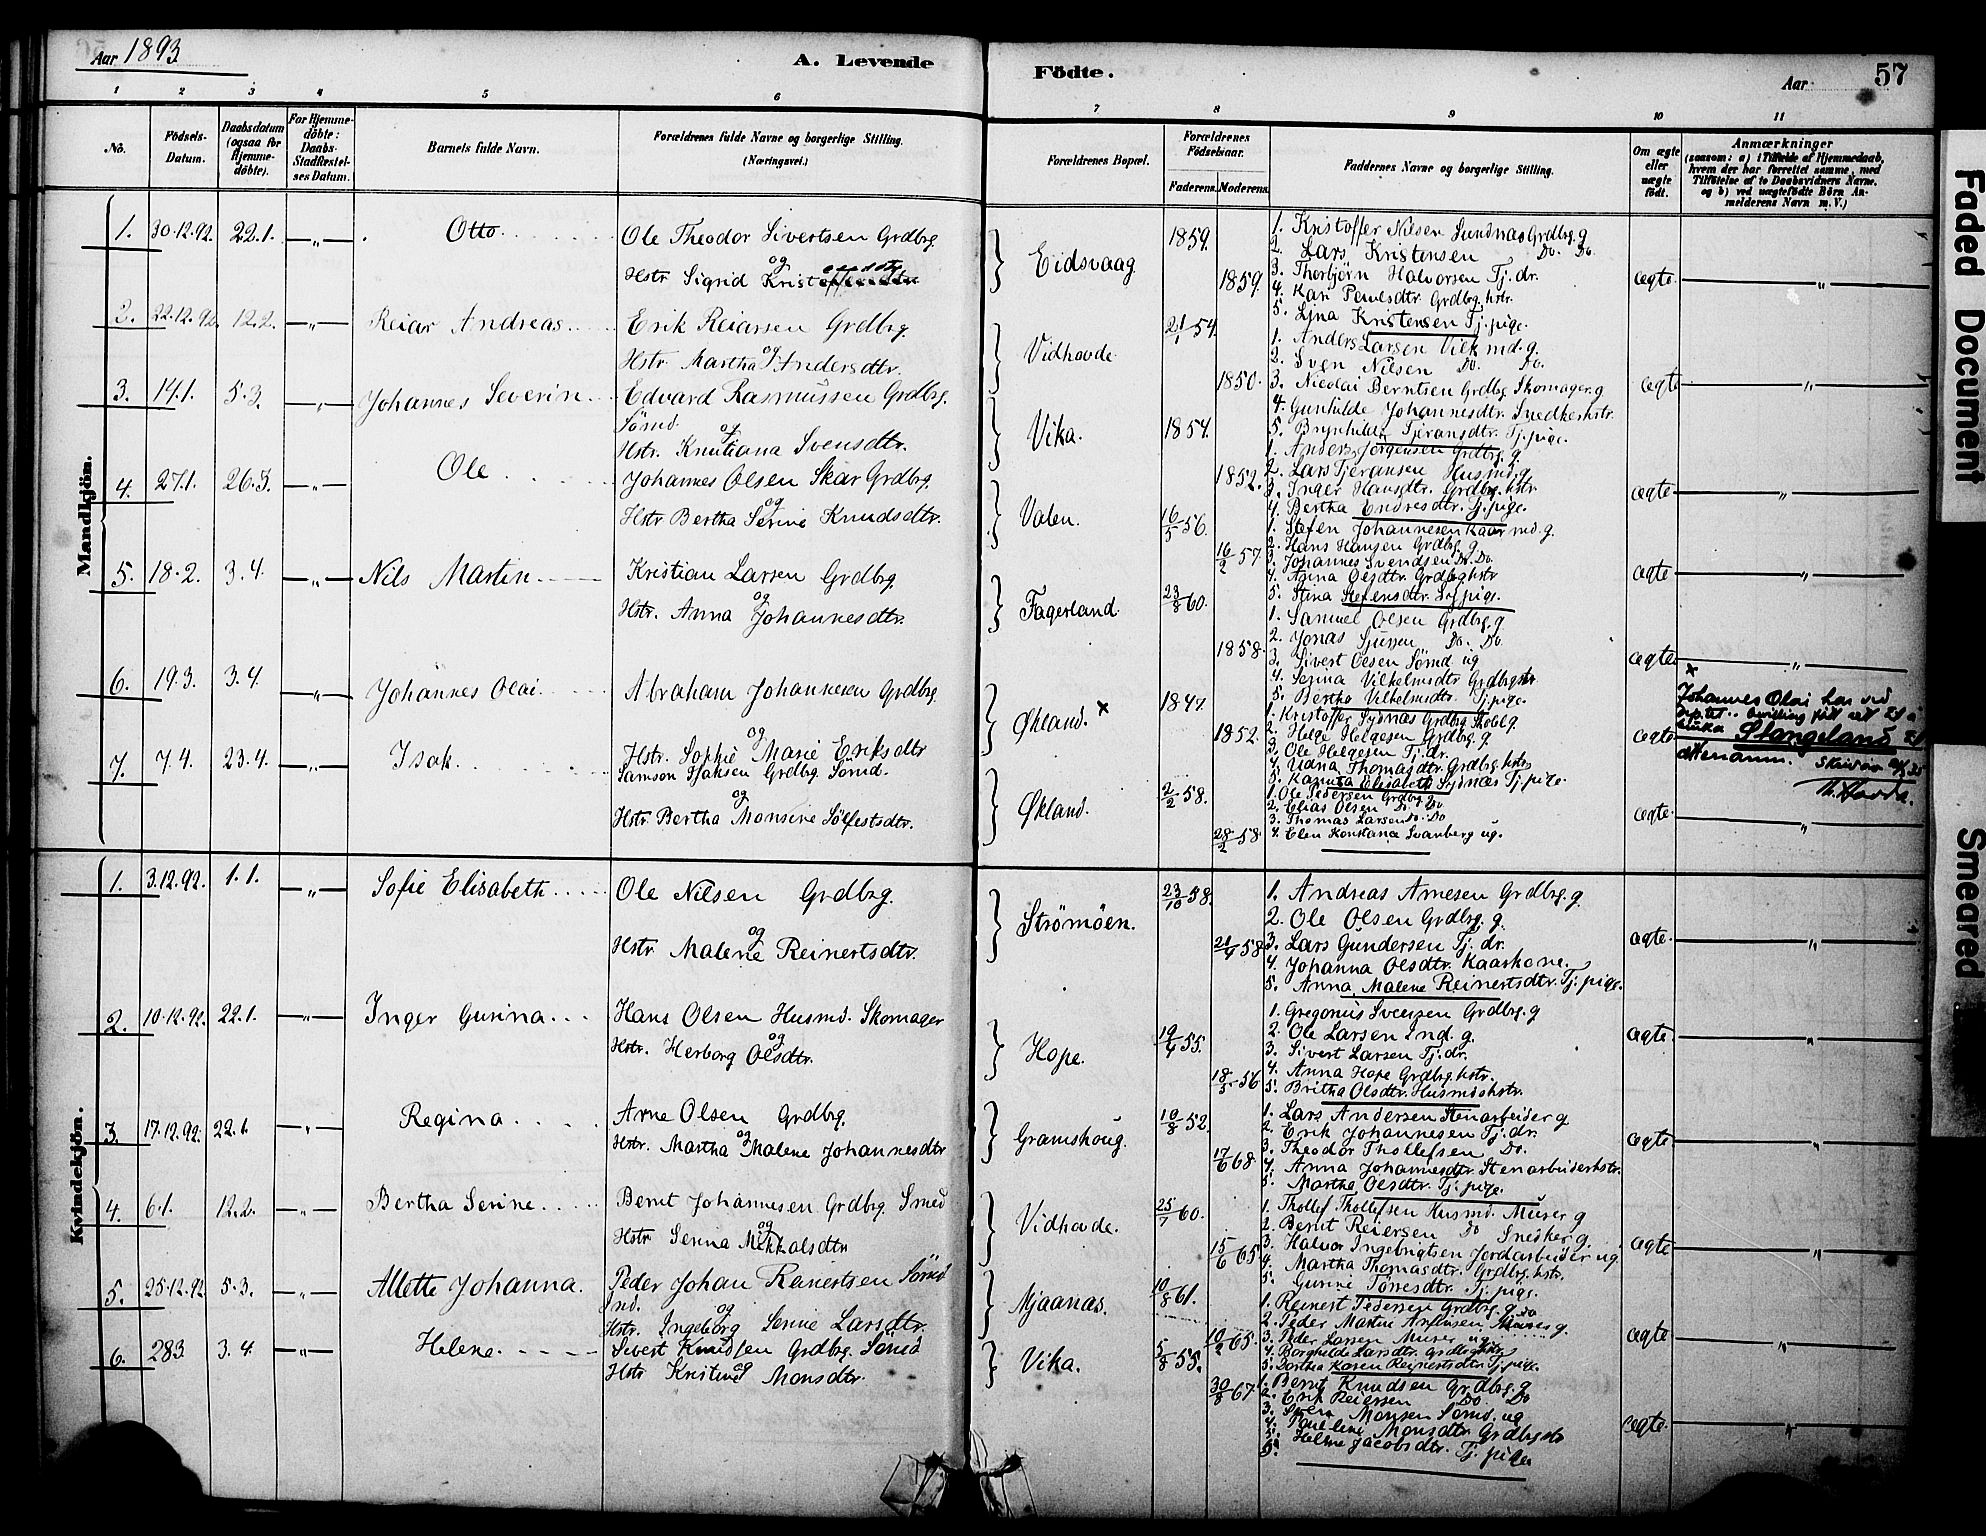 Aar 1893
A. Levende
Födte.
Aar
57
1 2 3 4 5 6 7 8 9 10 11
No.
Födsels-Datum.
Daabsdatum (ogsaa for Hjemme-döbte).
For Hjemme-döbte: Daabs-Stadfæstel-ses Datum.
Barnets fulde Navn.
Forældrenes fulde Navne og borgerlige Stilling.
(Næringsvei.)
Forældrenes Bopæl.
Forældrenes Födselsaar.
Faderens. Moderens.
Faddernes Navne og borgerlige Stilling.
Om ægte eller uægte födt.
Anmærkninger
(saasom: a) i Tilfælde af Hjemmedaab, hvem der har forrettet samme, med Tilföielse af to Daabsvidners Navne, og b) ved uægtefödte Börn An-melderens Navn m. V.)
Mandkjön.
1. 30.12.92. 22.1. -„- Otto. Ole Theodor Sivertsen Grdbrg.
og
Hstr Sigrid
Eidsvaag 1859. 1859. ægte „
1. Kristoffer Nilsen Sundnas Grdbrg. g
2. Lars Kristensen Do. Do.
3. Thorbjörn Halvorsen Tj. dr.
4. Kari Paulsdtr. Grdbrg. hstr.
5. Lina Kristensen Tj. pige.
2. 22.12.92. 12.2. -„- Reiar Andreas. Erik Reiarsen Grdbrg.
og
Hstr. Martha Andersdtr.
Vidhovde 21/1 54. 1850. ægte „
1. Anders Larsen Vik md. g.
2. Sven Nilsen Do. Do.
3. Nicolai Berntsen Grdbrg. Skomager. g
4. Gunhilde Johannesdtr. Snedkerhstr.
5. Brynhilde Tjeransdtr. Tj. pige.
3. 14.1. 5.3. -„- Johannes Severin. Edvard Rasmussen Grdbrg.
Sömd.
og
Hstr. Knutiana Svensdtr.
Vika. 1854. 1852. ægte „
1. Anders Jörgensen Grdbrg. g
2. Lars Tjeransen Husmd. g
3. Inger Hansdtr. Grdbrg. hstr.
4. Bertha Endresdtr. Tj. pige.
4. 27.1. 26.3. -„- Ole Johannes Olsen Skar Grdbrg.
og
Hstr Bertha Serine Knudsdtr.
Valen. 16/5 56. 16/2 57. ægte „
1. Stefen Johannesen Kaarmd. g.
2. Hans Hansen Grdbrg. g.
3. Johannes Svendsen Do. Do
4. Anna Olsdtr. Grdbrghstr
5. Stina Stefensdtr. Tj. pige.
5. 18.2. 3.4. -„- Nils Martin. Kristian Larsen Grdbrg.
og
Hstr. Anna Johannesdtr.
Fagerland 23/8 60. 1858. ægte „
1. Samuel Olsen Grdbrg. g
2. Jonas Sjursen Do. Do.
3. Sivert Olsen Sömd ug
4. Serina Vilhelmsdtr Grdbrghstr.
5. Bertha Vilhelmsdtr. Tj. pige.
6. 19.3. 3.4. -„- Johannes Olai. Abraham Johannesen Grdbrg.
og
Hstr. Sophie Marie Eriksdtr
Økland. × 1847. 1852. ægte
1. Kristoffer Sydnas Grdbrg Skobl g.
2. Helge Helgesen Grdbrg. g
3. Ole Helgesen Tj. dr.
4. Udna Thomasdtr. Grdbrg. hstr
5. Kanuta Elisabeth Sydnæs Tj. pige.
×
Johannes Olai har ved
Stangeland
ettenamn.
7. 7.4. 23.4. -„- Isak. Samson Isaksen Grdbrg. Sömd.
og
Hstr Bertha Monsine Sölfestsdtr.
Økland. 2/2 58. 28/2 58 ægte. „
1. Ole Pedersen Grdbrg.
2. Elias Olsen Do. Do
3. Thomas Larsen Do. Do
4. Elen Konstanse Svanberg ug.
Kvindekjön.
1. 3.12.92. 1.1. -„- Sofie Elisabeth. Ole Nilsen Grdbrg.
og
Hstr Malene Reinertsdtr.
Strömöen. 23/10 58. 21/4 58 ægte. „
1. Andreas Arnesen Grdbrg. g.
2. Ole Olsen Grdbrg. g.
3. Lars Gundersen Tj. dr.
4. Johanna Olsdtr. Kaarkone.
5. Anna Malene Reinertsdtr. Tj. pige.
2. 10.12.92. 22.1. -„- Inger Gurina. Hans Olsen Husmd. Skomager
og
Hstr. Herborg Olsdtr.
Hope. 19/4 55. 18/5 56 ægte. „
1. Gregonius Svensen Grdbrg. g
2. Ole Larsen Ind. g.
3. Sivert Larsen Tj. dr.
4. Anna Hope Grdbrg. hstr.
5. Britha Olsdtr. Husmdshstr.
3. 17.12.92. 22.1. -„- Regina. Arne Olsen Grdbrg.
og
Hstr. Martha Malene Johannesdtr
Gramshoug. 10/8 52. 17/6 68. ægte „
1. Lars Andersen Stenarbeider g
2. Erik Johannesen Tj. dr.
3. Theodor Thollefsen Do.
4. Anna Johannesdtr. Stenarbeiderhstr.
5. Martha Olsdtr. Tj. pige.
4. 6.1. 12.2. -„- Bertha Serine. Bernt Johannesen Grdbrg. Smed
og
Hstr Serina Mikkalsdtr
Vidhovde. 25/7 60. 15/6 65 ægte „
1. Thollef Thollefsen Husmd. Murer g
2. Bernt Reiersen Do Snedker g.
3. Halvor Ingebrigtsen Jordarbeider ug.
4. Martha Thomasdtr. Grdbrg. hstr.
5. Gurine Tönesdtr. Tj. pige.
5. 25.12.92 5.3. -„- Allette Johanna. Peder Johan Reinertsen Sömd
Ind.
og
Hstr. Ingeborg Serine Larsdtr.
Njaanas. 10/8 61. 10/2 65. ægte „
1. Reinert Pedersen Grdbrg. g. Do
2. Peder Martin Murer g.
3. Peder Larsen Murer ug.
4. Borghilde Larsdtr. Grdbrghstr
5. Dorthea Karen Reinertsdtr. Tj. pige.
6. 28.3 3.4. -„- Helene. Sivert Knudsen Grdbrg. Sömd
og
Hstr Kristine Monsdtr.
Vika. 5/8 55. 30/8 67. ægte. „
1. Bernt Knudsen Grdbrg. g
2. Erik Reiersen Do. Do
3. Sven Monsen Sömd. ug
4. Pauline Monsdtr. Grdbrghstr
5. Helene Jacobsdtr. Tj. pige
Faded Document
Smeared